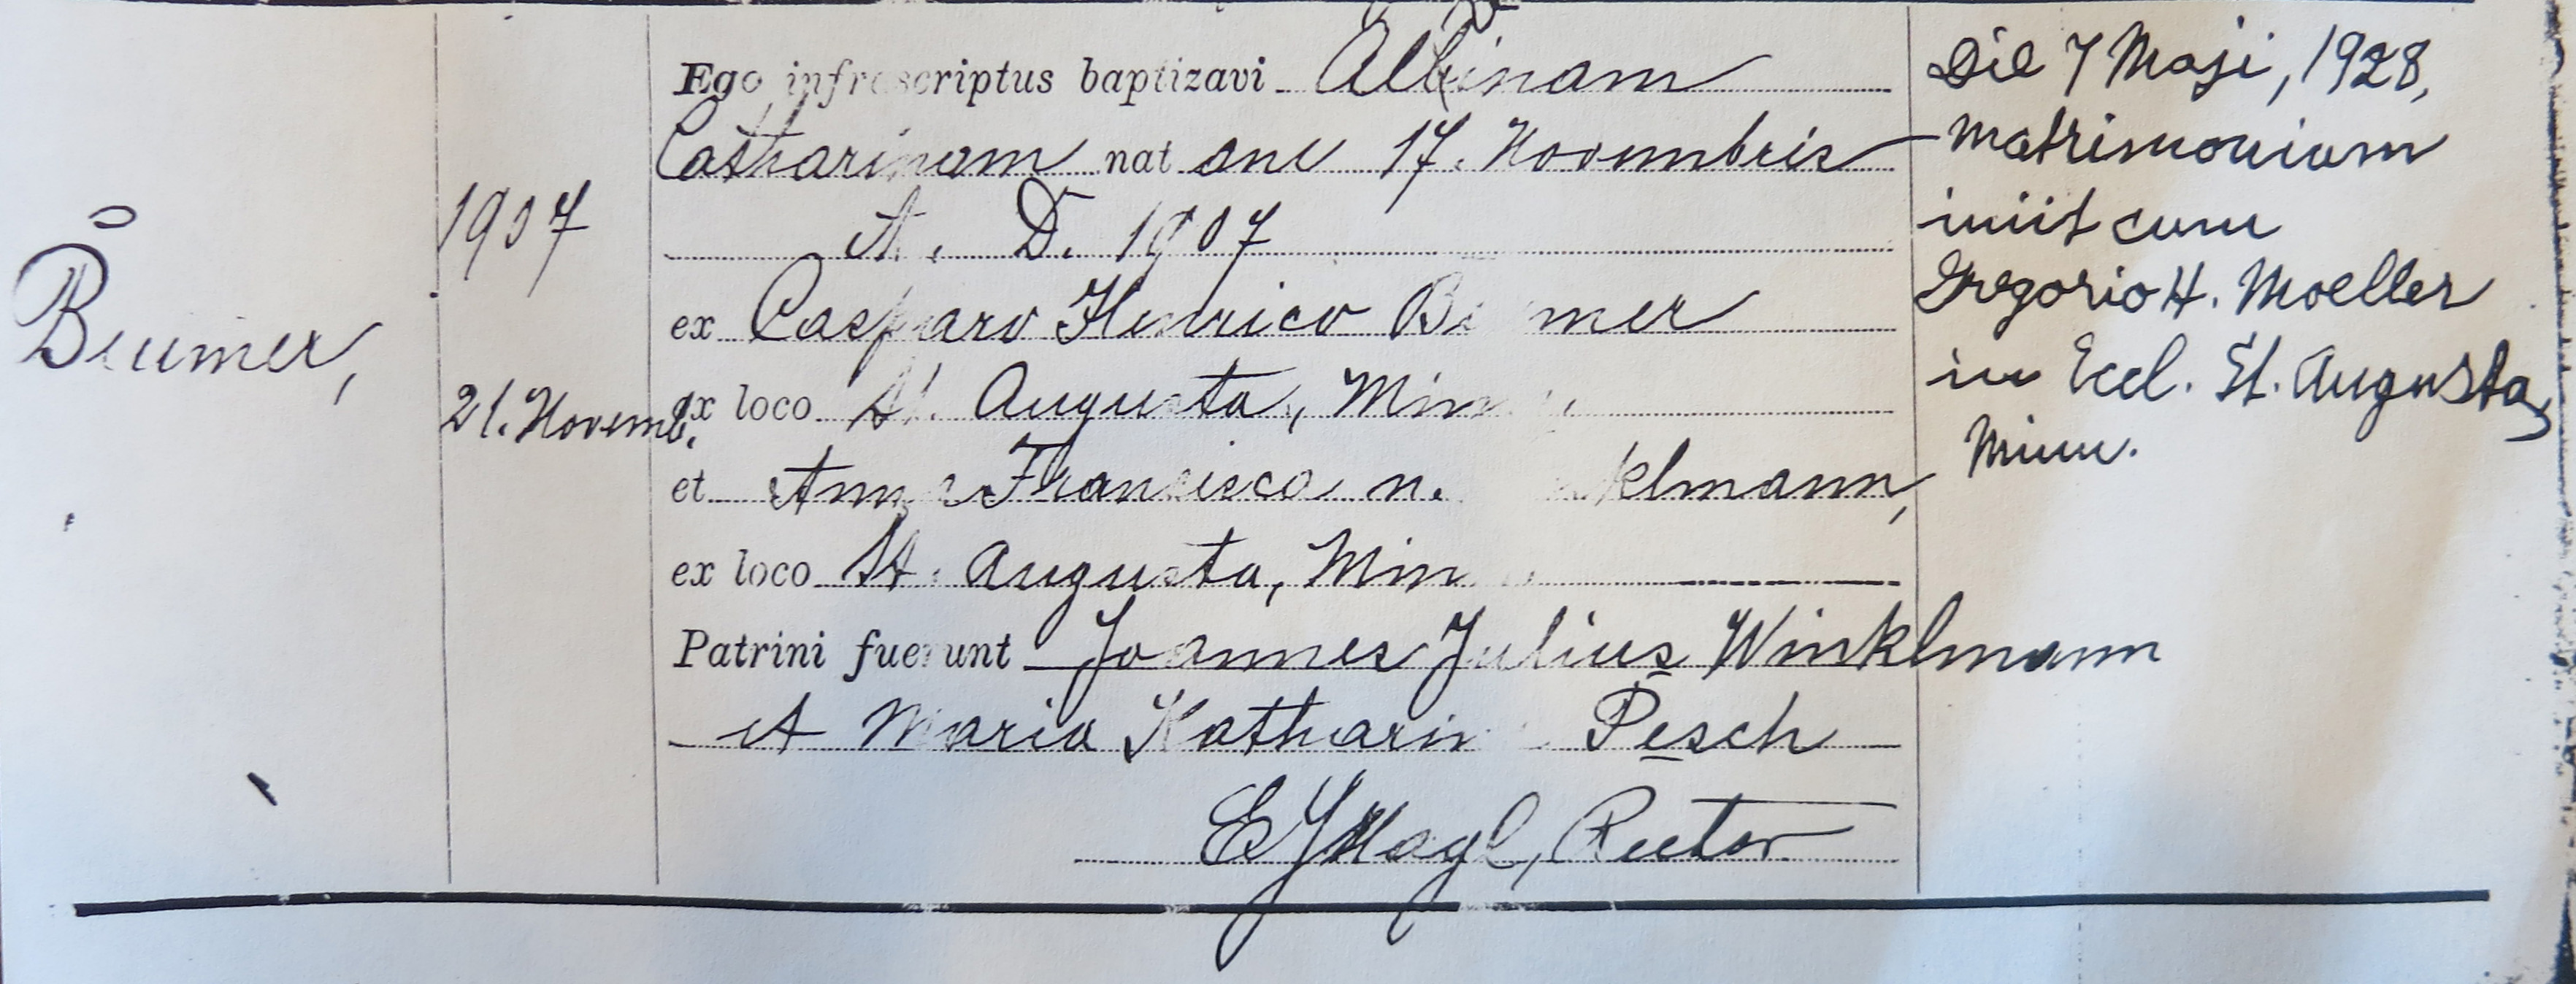 Beumer,
1907
21. Novemb.
Ego infrascriptus baptizavi Albinam
Catharinam nat am 17. Novembris
A. D. 1907
ex Casparo Henrico Beumer
ex loco St. Augusta, Minn
et Anna Francisca n. klmann,
ex loco St. Augusta, Minn
Patrini fuerunt Joannes Julius Winklmann
et Maria Katharin Pesch
Rector
Die 7 Maji, 1928,
matrimonium
iniit cum
Gregorio H. Moeller
in Eccl. St. Augusta,
Minn.